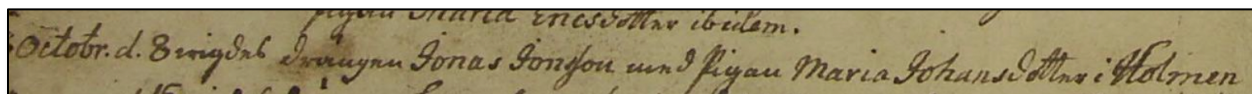 pigan Maria Ericsdotter ibidem.
Octobr. d. 8 wigdes drängen Jonas Jonsson med Pigan Maria Johansdotter i Holmen